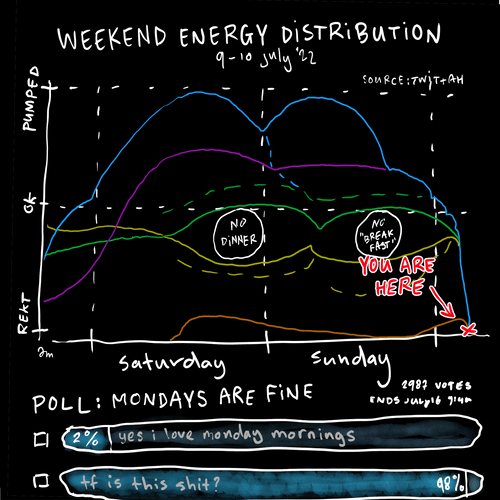 WEEKEND ENERGY DISTRIBUTION
9-10 july '22
SOURCE: TWIT+AH
PUMPED
OK
REKT
NO
DINNER
NO
"BREAK
FAST"
YOU ARE
HERE
saturday
sunday
POLL: MONDAYS ARE FINE
2987 VOTES
ENDS July 16
2%
yes i love monday mornings
tf is this shit?
98%